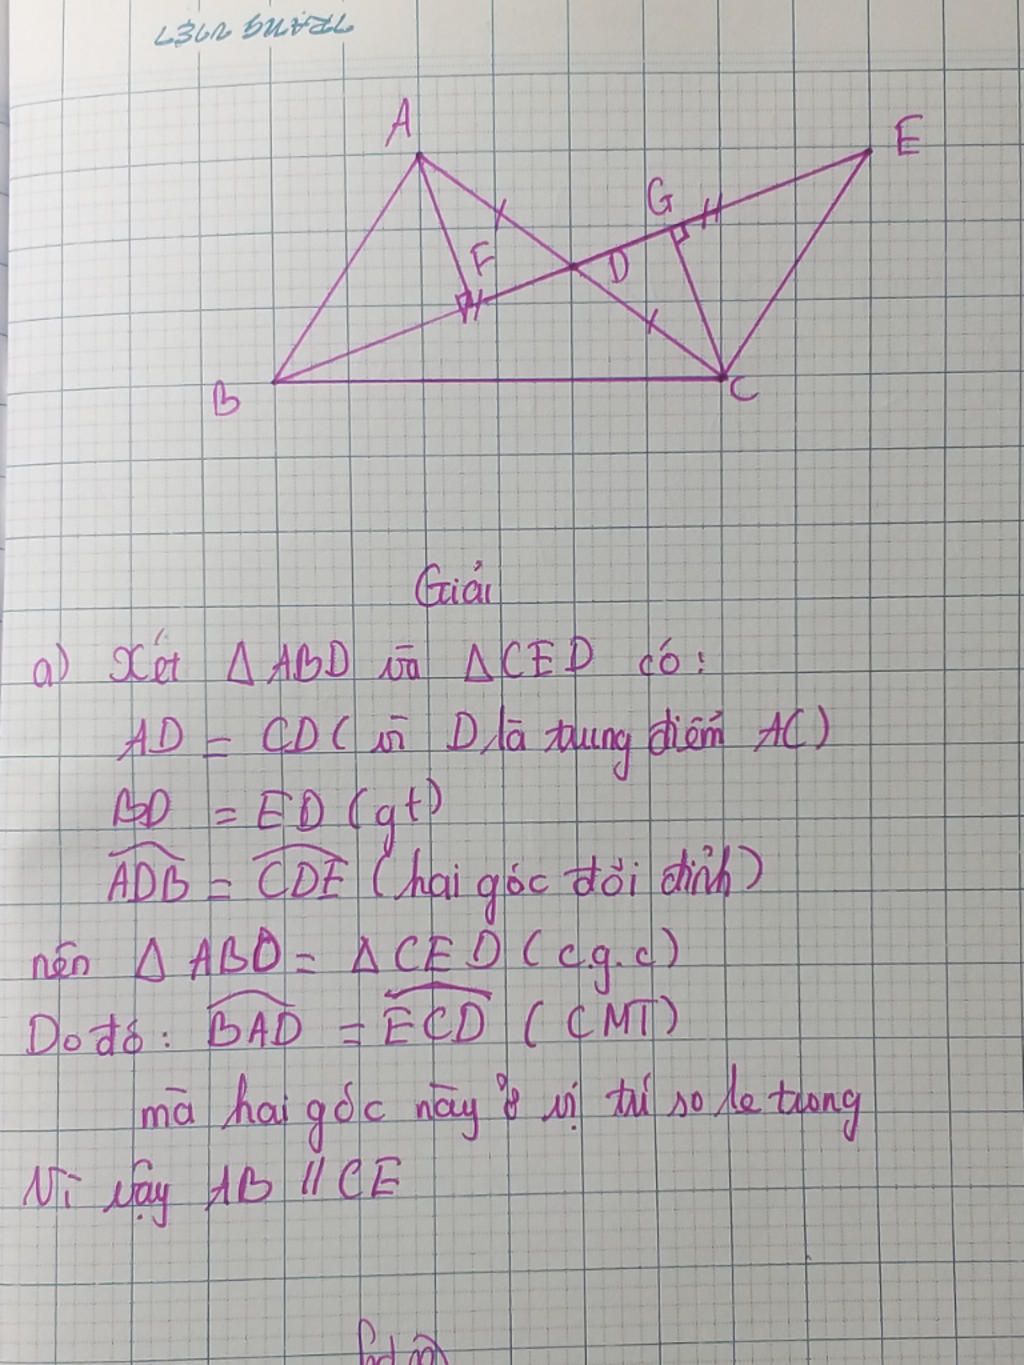 A
E
G
F
D
B
C
Giải
a) Xét Δ ABD và Δ CED có:
AD = CD ( vì D là trung điểm AC)
BD = ED (gt)
ADB = CDE (hai góc đối đỉnh)
nên Δ ABD = Δ CED (c.g.c)
Do đó: BAD = ECD (CMT)
mà hai góc này ở vị trí so le trong
Vì vậy AB // CE